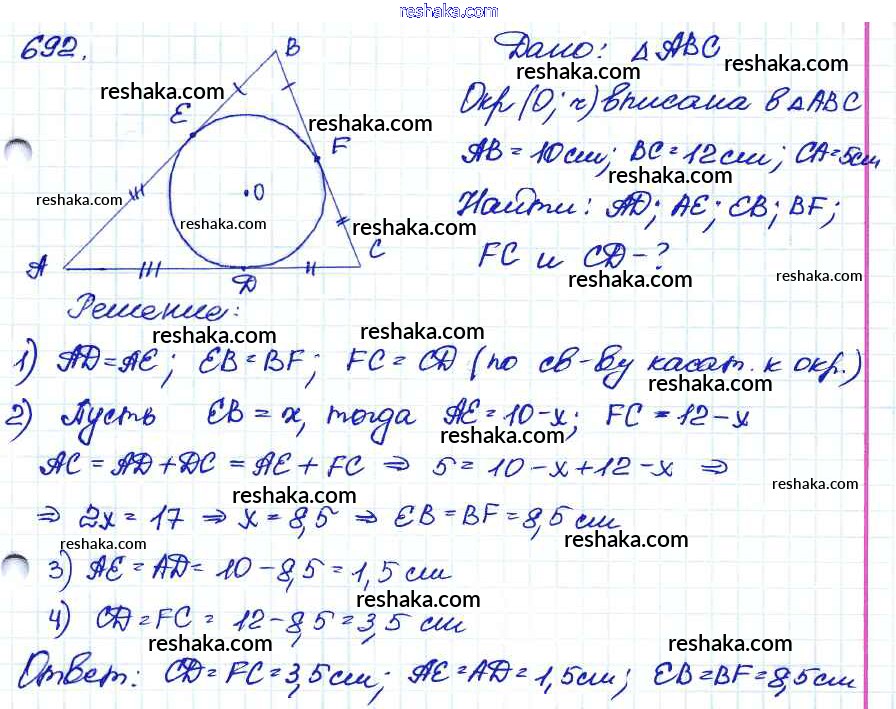 reshaka.com
692.
B
Дано: △ABC
reshaka.com
reshaka.com
E
Окр(O; r) вписана в △ABC
reshaka.com
F
AB = 10 см; BC = 12 см; CA = 5 см
reshaka.com
reshaka.com
O
reshaka.com
Найти: AD; AE; EB; BF;
reshaka.com
A
C
FC и CD - ?
reshaka.com
reshaka.com
D
Решение:
reshaka.com
reshaka.com
1) AD = AE; EB = BF; FC = CD (по св-ву касат. к окр.)
reshaka.com
2) Пусть EB = x, тогда AE = 10 - x; FC = 12 - x
reshaka.com
AC = AD + DC = AE + FC ⇒ 5 = 10 - x + 12 - x ⇒
reshaka.com
reshaka.com
⇒ 2x = 17 ⇒ x = 8,5 ⇒ EB = BF = 8,5 см
reshaka.com
reshaka.com
3) AE = AD = 10 - 8,5 = 1,5 см
reshaka.com
4) CD = FC = 12 - 8,5 = 3,5 см
reshaka.com
reshaka.com
Ответ: CD = FC = 3,5 см; AE = AD = 1,5 см; EB = BF = 8,5 см